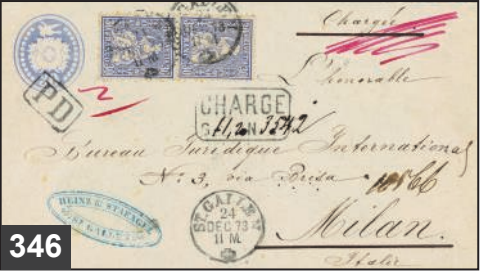 ST. GALLEN
Chargée
L'honorable
PD
CHARGE
3542
Bureau Juridique International
N: 3, via Brisa
HEINE & STAENGEL
ST GALLEN
ST. GALLEN
24
DEC 73
11 M.
Milan.
Italie
346